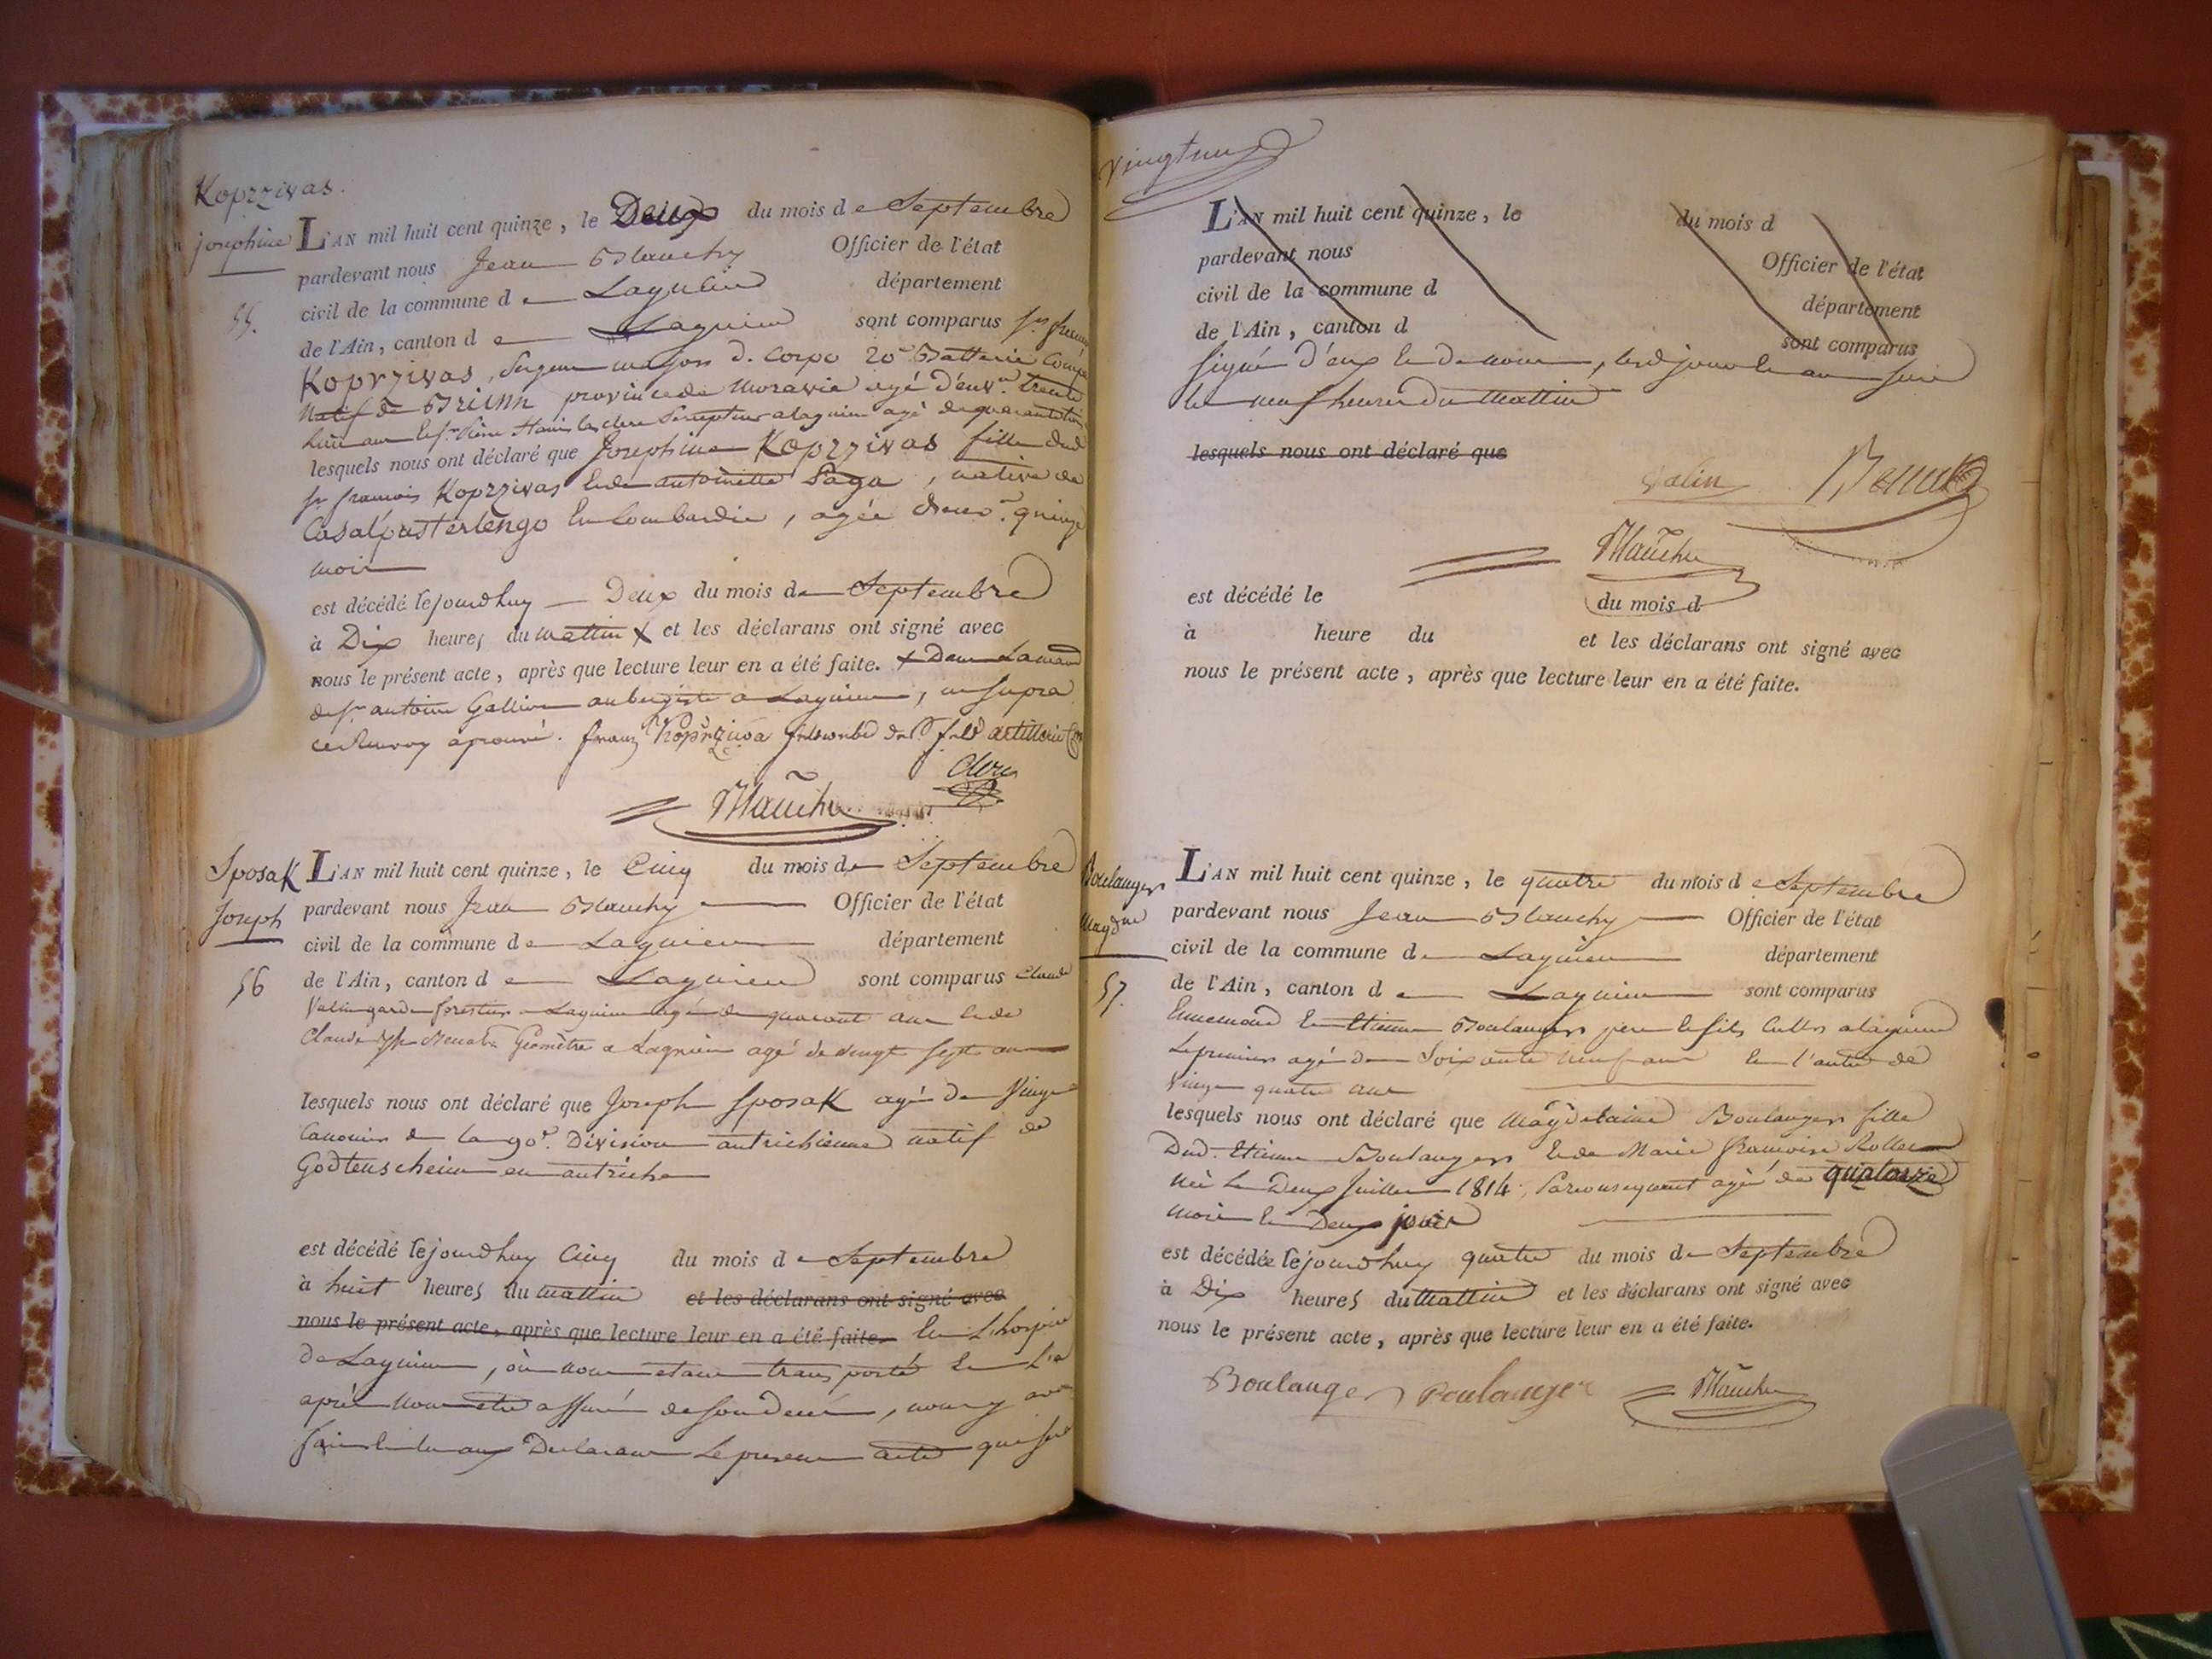 Koprzivas.
josephine
55.
L'AN mil huit cent quinze, le Deux du mois de Septembre
pardevant nous Jean Blanchy Officier de l'état
civil de la commune de Lagnieu département
de l'Ain, canton de Lagnieu sont comparus Sr
Koprzivas, major d. Corps 20e Batterie
Natif de Briinn province de Moravie agé d'env.n trente
agé de quarante
lesquels nous ont déclaré que Josephine Koprzivas fille dud
Sr francois Koprzivas et de antoinette Saga, native de
Casalpusterlengo en Lombardie, agée d'env.n quinze
mois
est décédé lejourdhuy Deux du mois de Septembre
à Dix heures du mattin X et les déclarans ont signé avec
nous le présent acte, après que lecture leur en a été faite. X Dans La maison
de Sr antoine Gallien aubergiste a Lagnieu, en supra
ce Renvoy aprouvé. franz Koprziwa artillerie
Clerc
Blanchy
Sposak
Joseph
56
L'AN mil huit cent quinze, le Cinq du mois de Septembre
pardevant nous Jean Blanchy Officier de l'état
civil de la commune de Lagnieu département
de l'Ain, canton de Lagnieu sont comparus Claude
Valin garde forestier a Lagnieu agé de quarante ans et de
Claude Géomètre a Lagnieu agé de vingt sept ans
lesquels nous ont déclaré que Joseph Sposak agé de Vingt
Canonier de la 90e. Division autrichienne natif de
Godtenscheim en autriche
est décédé lejourdhuy Cinq du mois de Septembre
à huit heures du mattin et les déclarans ont signé avec
nous le présent acte, après que lecture leur en a été faite. En L'hospice
de Lagnieu, où nous etant transporté et là
après nous etre assuré de son Decès, nous y avons
fait et lu aux Declarans Le present acte qui sera
Vingt neuf
L'AN mil huit cent quinze, le du mois d
pardevant nous Officier de l'état
civil de la commune d département
de l'Ain, canton d sont comparus
signé d'eux et de nous, lesd jour et an sur
les neuf heures du mattin
lesquels nous ont déclaré que
Valin
Blanchy
est décédé le du mois d
à heure du et les déclarans ont signé avec
nous le présent acte, après que lecture leur en a été faite.
Boulanger
Magdne
57.
L'AN mil huit cent quinze, le quatre du mois de Septembre
pardevant nous Jean Blanchy Officier de l'état
civil de la commune de Lagnieu département
de l'Ain, canton de Lagnieu sont comparus
Ennemond et Etienne Boulanger père et fils Cultrs a Lagnieu
Le premier agé de Soixante neuf ans et l'autre de
Vingt quatre ans
lesquels nous ont déclaré que Magdelaine Boulanger fille
Dud. Etienne Boulanger et de Marie francoise Rollet
née le Deux Juillet 1814, Parconsequent agée de quatorze
mois et Deux jours
est décédée lejourdhuy quatre du mois de Septembre
à Dix heures du Mattin et les déclarans ont signé avec
nous le présent acte, après que lecture leur en a été faite.
Boulanger Boulanger Blanchy